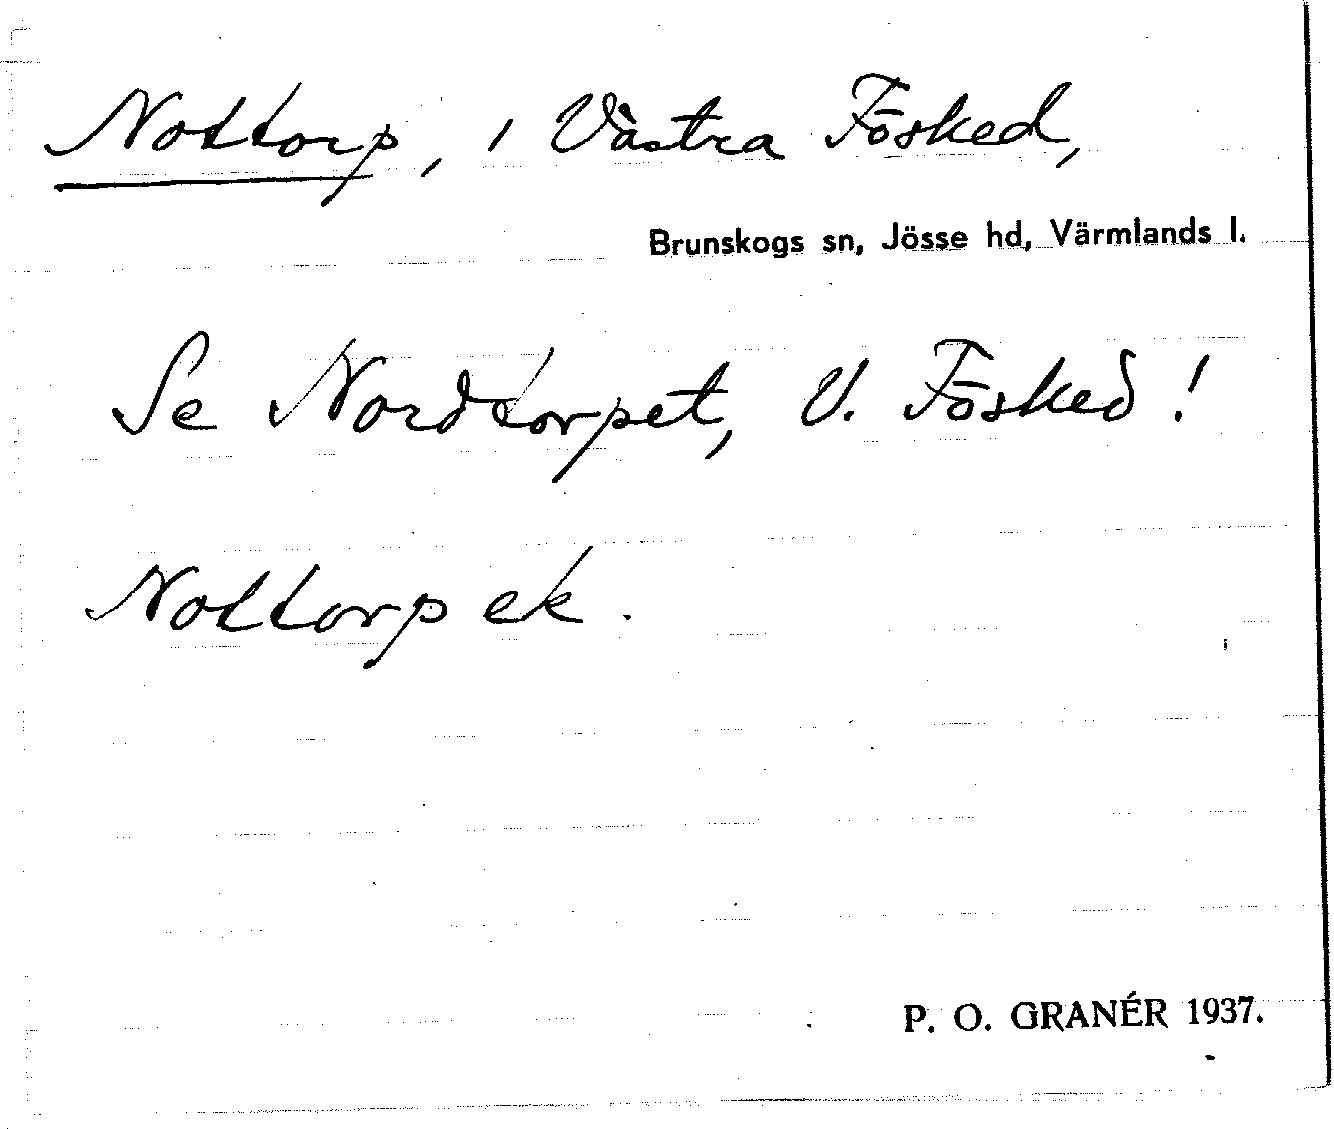 Nottorp, i Västra Fösked,
Brunskogs sn, Jösse hd, Värmlands l.
Se Nordtorpet, V. Fösked!
Nottorp ek.
P. O. GRANÉR 1937.